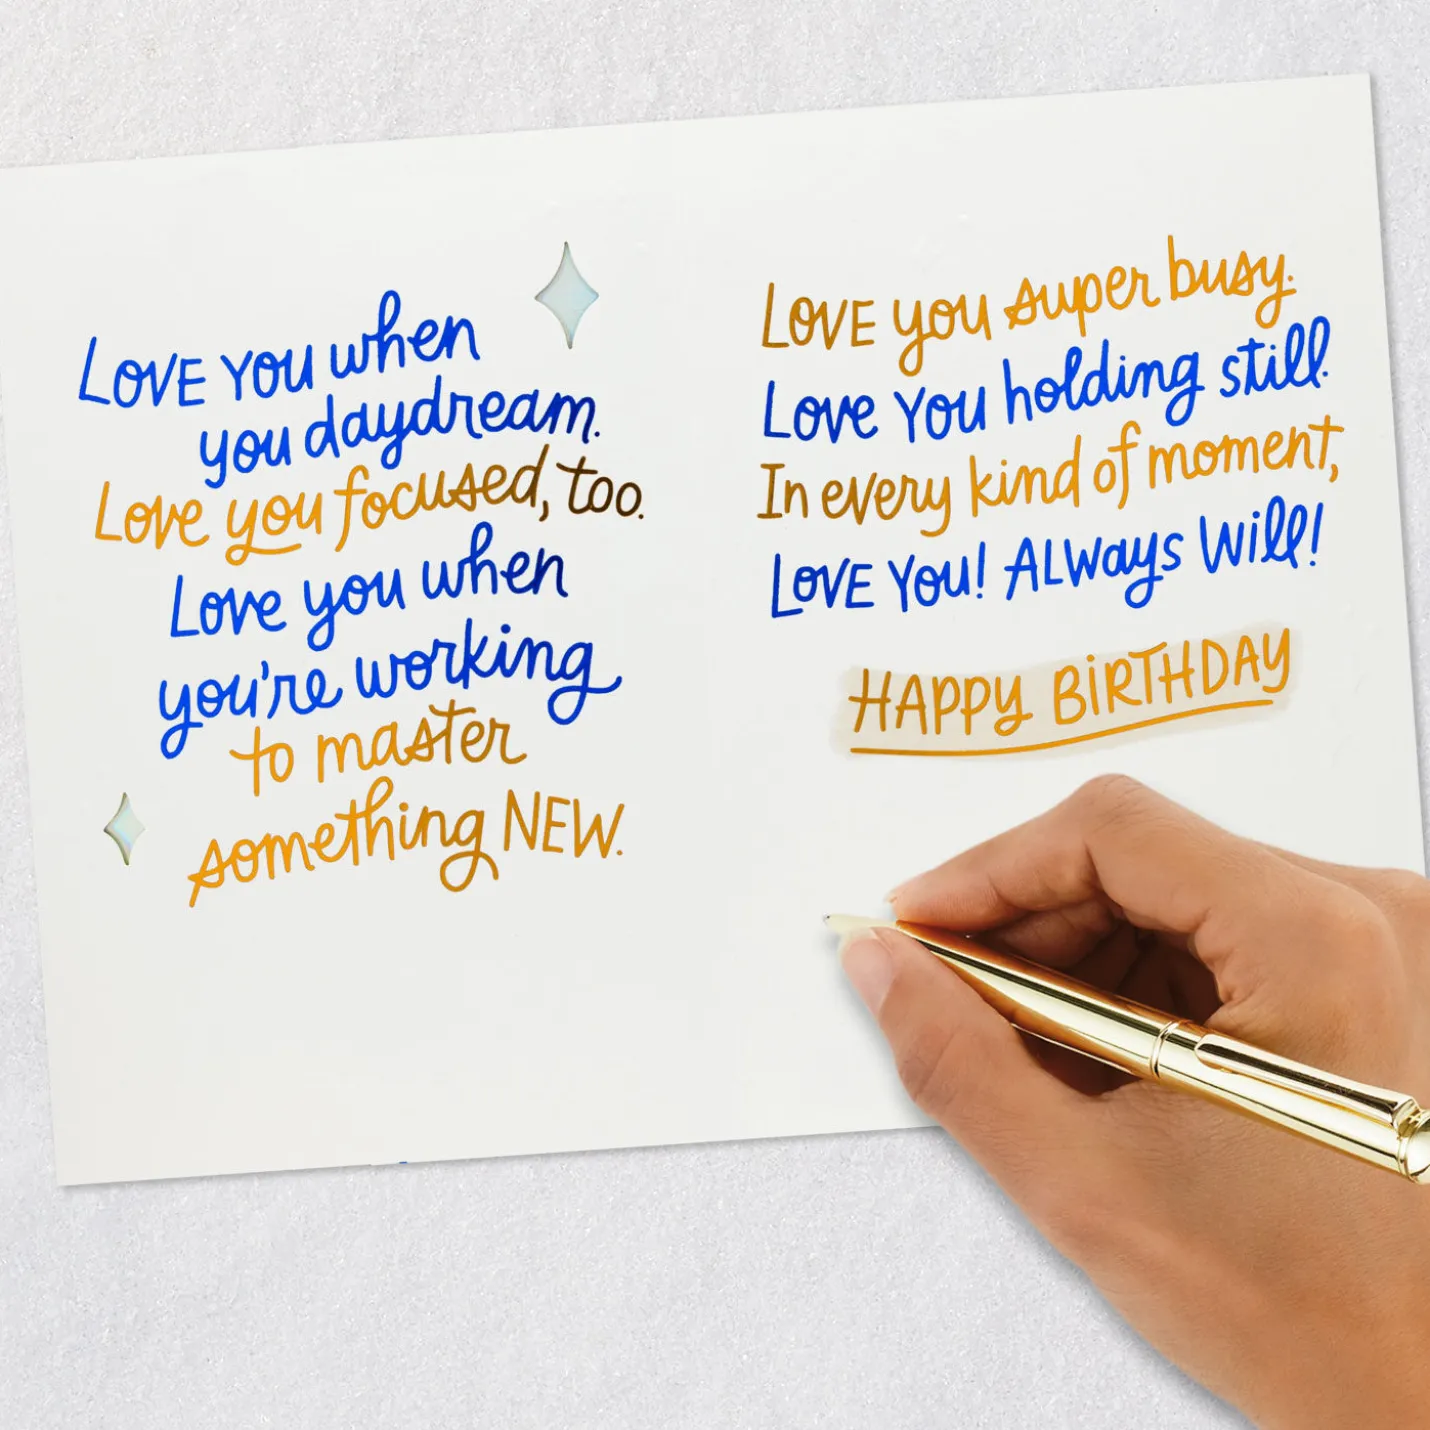 LOVE YOU when
you daydream.
Love you focused, too.
Love you when
you're working
to master
something NEW.
LOVE you super busy.
Love You holding still.
In every kind of moment,
LOVE YOU! ALWAYS Will!
HAPPY BIRTHDAY